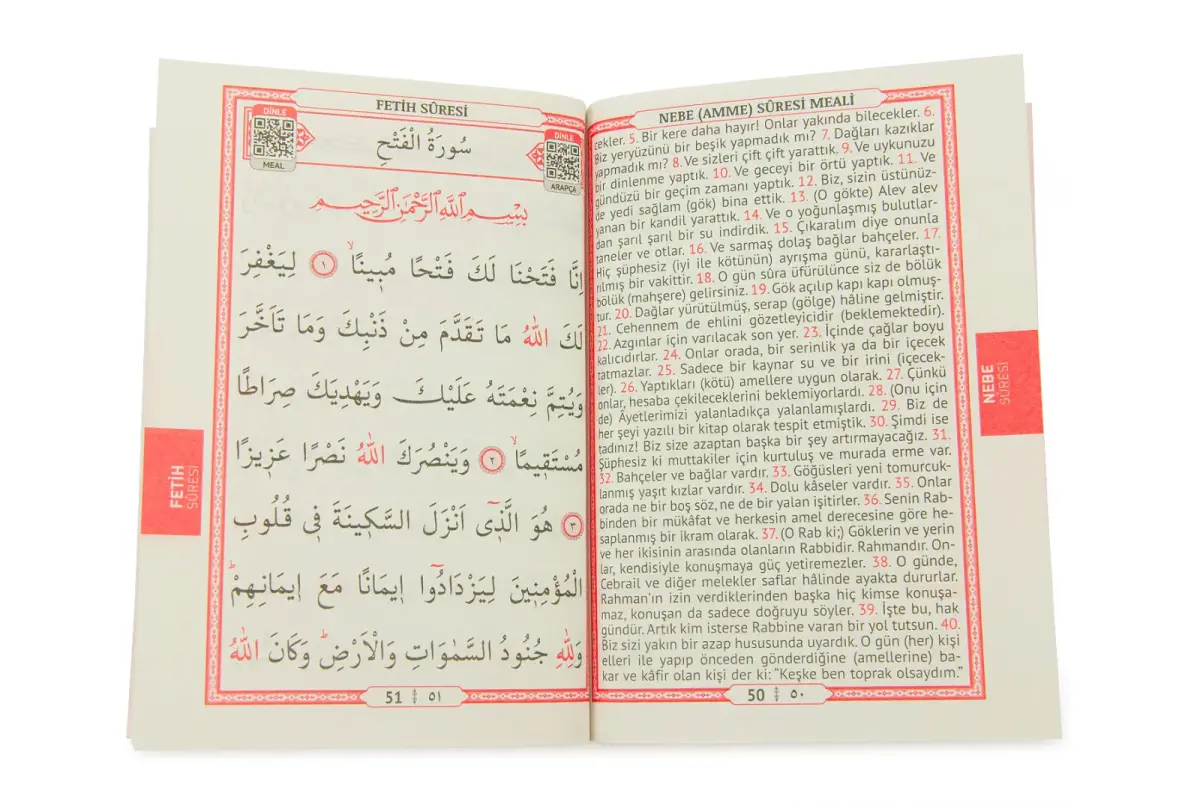 NEBE (AMME) SÛRESİ MEALİ
cekler. 5. Bir kere daha hayır! Onlar yakında bilecekler. 6.
Biz yeryüzünü bir beşik yapmadık mı? 7. Dağları kazıklar
yapmadık mı? 8. Ve sizleri çift çift yarattık. 9. Ve uykunuzu
bir dinlenme yaptık. 10. Ve geceyi bir örtü yaptık. 11. Ve
gündüzü bir geçim zamanı yaptık. 12. Biz, sizin üstünüz-
de yedi sağlam (gök) bina ettik. 13. (O gökte) Alev alev
yanan bir kandil yarattık. 14. Ve o yoğunlaşmış bulutlar-
dan şarıl şarıl bir su indirdik. 15. Çıkaralım diye onunla
taneler ve otlar. 16. Ve sarmaş dolaş bağlar bahçeler. 17.
Hiç şüphesiz (iyi ile kötünün) ayrışma günü, kararlaştı-
rılmış bir vakittir. 18. O gün sûra üfürülünce siz de bölük
bölük (mahşere) gelirsiniz. 19. Gök açılıp kapı kapı olmuş-
tur. 20. Dağlar yürütülmüş, serap (gölge) hâline gelmiştir.
21. Cehennem de ehlini gözetleyicidir (beklemektedir).
22. Azgınlar için varılacak son yer. 23. İçinde çağlar boyu
kalıcıdırlar. 24. Onlar orada, bir serinlik ya da bir içecek
tatmazlar. 25. Sadece bir kaynar su ve bir irini (içecek-
ler). 26. Yaptıkları (kötü) amellere uygun olarak. 27. Çünkü
onlar, hesaba çekileceklerini beklemiyorlardı. 28. (Onu için
de) Âyetlerimizi yalanladıkça yalanlamışlardı. 29. Biz de
her şeyi yazılı bir kitap olarak tespit etmiştik. 30. Şimdi ise
tadınız! Biz size azaptan başka bir şey artırmayacağız. 31.
Şüphesiz ki muttakiler için kurtuluş ve murada erme var.
32. Bahçeler ve bağlar vardır. 33. Göğüsleri yeni tomurcuk-
lanmış yaşıt kızlar vardır. 34. Dolu kâseler vardır. 35. Onlar
orada ne bir boş söz, ne de bir yalan işitirler. 36. Senin Rab-
binden bir mükâfat ve herkesin amel derecesine göre he-
saplanmış bir ikram olarak. 37. (O Rab ki;) Göklerin ve yerin
ve her ikisinin arasında olanların Rabbidir. Rahmandır. On-
lar, kendisiyle konuşmaya güç yetiremezler. 38. O günde,
Cebrail ve diğer melekler saflar hâlinde ayakta dururlar.
Rahman'ın izin verdiklerinden başka hiç kimse konuşa-
maz, konuşan da sadece doğruyu söyler. 39. İşte bu, hak
gündür. Artık kim isterse Rabbine varan bir yol tutsun. 40.
Biz sizi yakın bir azap hususunda uyardık. O gün (her) kişi
elleri ile yapıp önceden gönderdiğine (amellerine) ba-
kar ve kâfir olan kişi der ki: “Keşke ben toprak olsaydım.”
50 ٥٠
NEBE
SÛRESİ
FETİH SÛRESİ
DİNLE
MEAL
سُورَةُ الْفَتْحِ
DİNLE
ARAPÇA
بِسْمِ اللّٰهِ الرَّحْمٰنِ الرَّحِيمِ
اِنَّا فَتَحْنَا لَكَ فَتْحًا مُبِينًاۙ ١ لِيَغْفِرَ
لَكَ اللّٰهُ مَا تَقَدَّمَ مِنْ ذَنْبِكَ وَمَا تَاَخَّرَ
وَيُتِمَّ نِعْمَتَهُ عَلَيْكَ وَيَهْدِيَكَ صِرَاطًا
مُسْتَقِيمًاۙ ٢ وَيَنْصُرَكَ اللّٰهُ نَصْرًا عَزِيزًا
٣ هُوَ الَّذٓي اَنْزَلَ السَّكِينَةَ فِي قُلُوبِ
الْمُؤْمِنِينَ لِيَزْدَادُٓوا اِيمَانًا مَعَ اِيمَانِهِمْۜ
وَلِلّٰهِ جُنُودُ السَّمٰوَاتِ وَالْاَرْضِۜ وَكَانَ اللّٰهُ
51 ٥١
FETİH
SÛRESİ